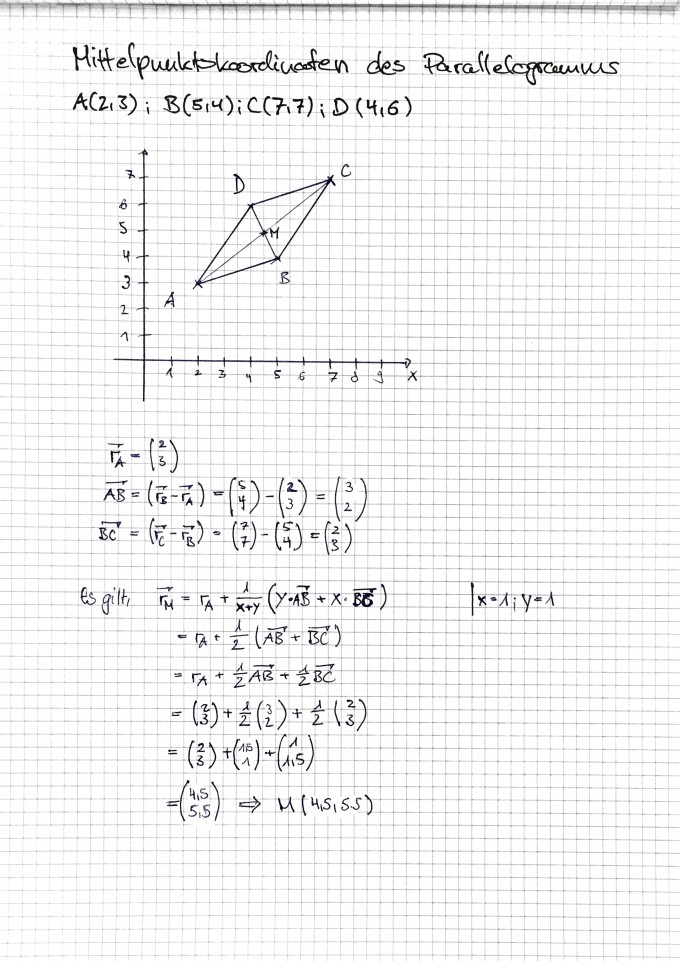 Mittelpunktskoordinaten des Parallelogramms
A(2,3) ; B(5,4) ; C(7,7) ; D(4,6)
7
6
5
4
3
2
1
D
C
M
B
A
1 2 3 4 5 6 7 8 9 X
r⃗_A = (2 3)
A⃗B⃗ = (r⃗_B - r⃗_A) = (5 4) - (2 3) = (3 2)
B⃗C⃗ = (r⃗_C - r⃗_B) = (7 7) - (5 4) = (2 3)
Es gilt, r⃗_M = r_A + 1/(x+y) (y·A⃗B⃗ + x·B⃗C⃗) | x=1 ; y=1
= r_A + 1/2 (A⃗B⃗ + B⃗C⃗)
= r_A + 1/2 A⃗B⃗ + 1/2 B⃗C⃗
= (2 3) + 1/2 (3 2) + 1/2 (2 3)
= (2 3) + (1,5 1) + (1 1,5)
= (4,5 5,5) ⇒ M (4,5, 5,5)